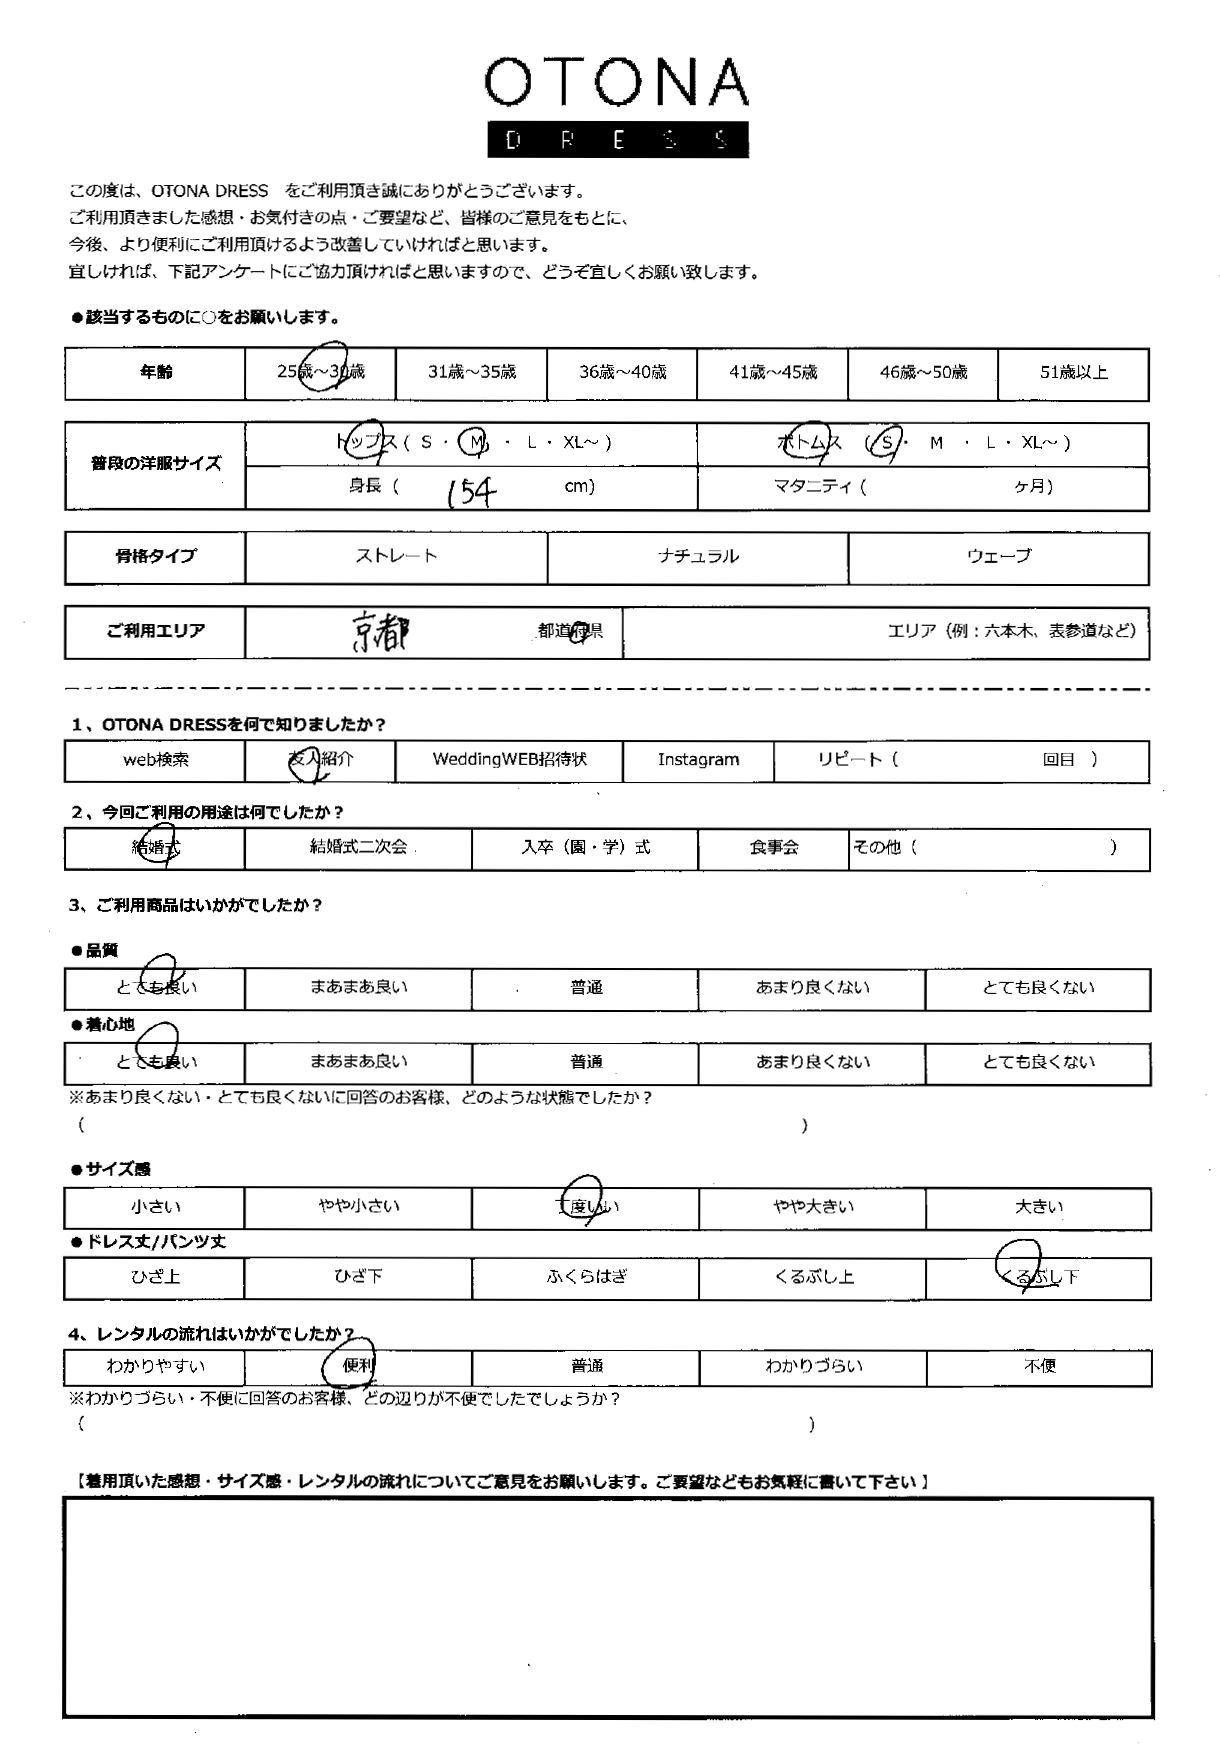 OTONA
DRESS
この度は、OTONA DRESS　をご利用頂き誠にありがとうございます。
ご利用頂きました感想・お気付きの点・ご要望など、皆様のご意見をもとに、
今後、より便利にご利用頂けるよう改善していければと思います。
宜しければ、下記アンケートにご協力頂ければと思いますので、どうぞ宜しくお願い致します。
●該当するものに○をお願いします。
年齢 25歳～30歳 31歳～35歳 36歳～40歳 41歳～45歳 46歳～50歳 51歳以上
普段の洋服サイズ トップス（ S ・ M ・ L ・ XL～ ） ボトムス （ S ・ M ・ L ・ XL～ ）
身長（ 154 cm） マタニティ（ ヶ月）
骨格タイプ ストレート ナチュラル ウェーブ
ご利用エリア 京都 都道府県 エリア（例：六本木、表参道など）
1、OTONA DRESSを何で知りましたか？
web検索 友人紹介 WeddingWEB招待状 Instagram リピート（ 回目 ）
2、今回ご利用の用途は何でしたか？
結婚式 結婚式二次会 入卒（園・学）式 食事会 その他（ ）
3、ご利用商品はいかがでしたか？
●品質
とても良い まあまあ良い 普通 あまり良くない とても良くない
●着心地
とても良い まあまあ良い 普通 あまり良くない とても良くない
※あまり良くない・とても良くないに回答のお客様、どのような状態でしたか？
（ ）
●サイズ感
小さい やや小さい 丁度いい やや大きい 大きい
●ドレス丈/パンツ丈
ひざ上 ひざ下 ふくらはぎ くるぶし上 くるぶし下
4、レンタルの流れはいかがでしたか？
わかりやすい 便利 普通 わかりづらい 不便
※わかりづらい・不便に回答のお客様、どの辺りが不便でしたでしょうか？
（ ）
【着用頂いた感想・サイズ感・レンタルの流れについてご意見をお願いします。ご要望などもお気軽に書いて下さい】